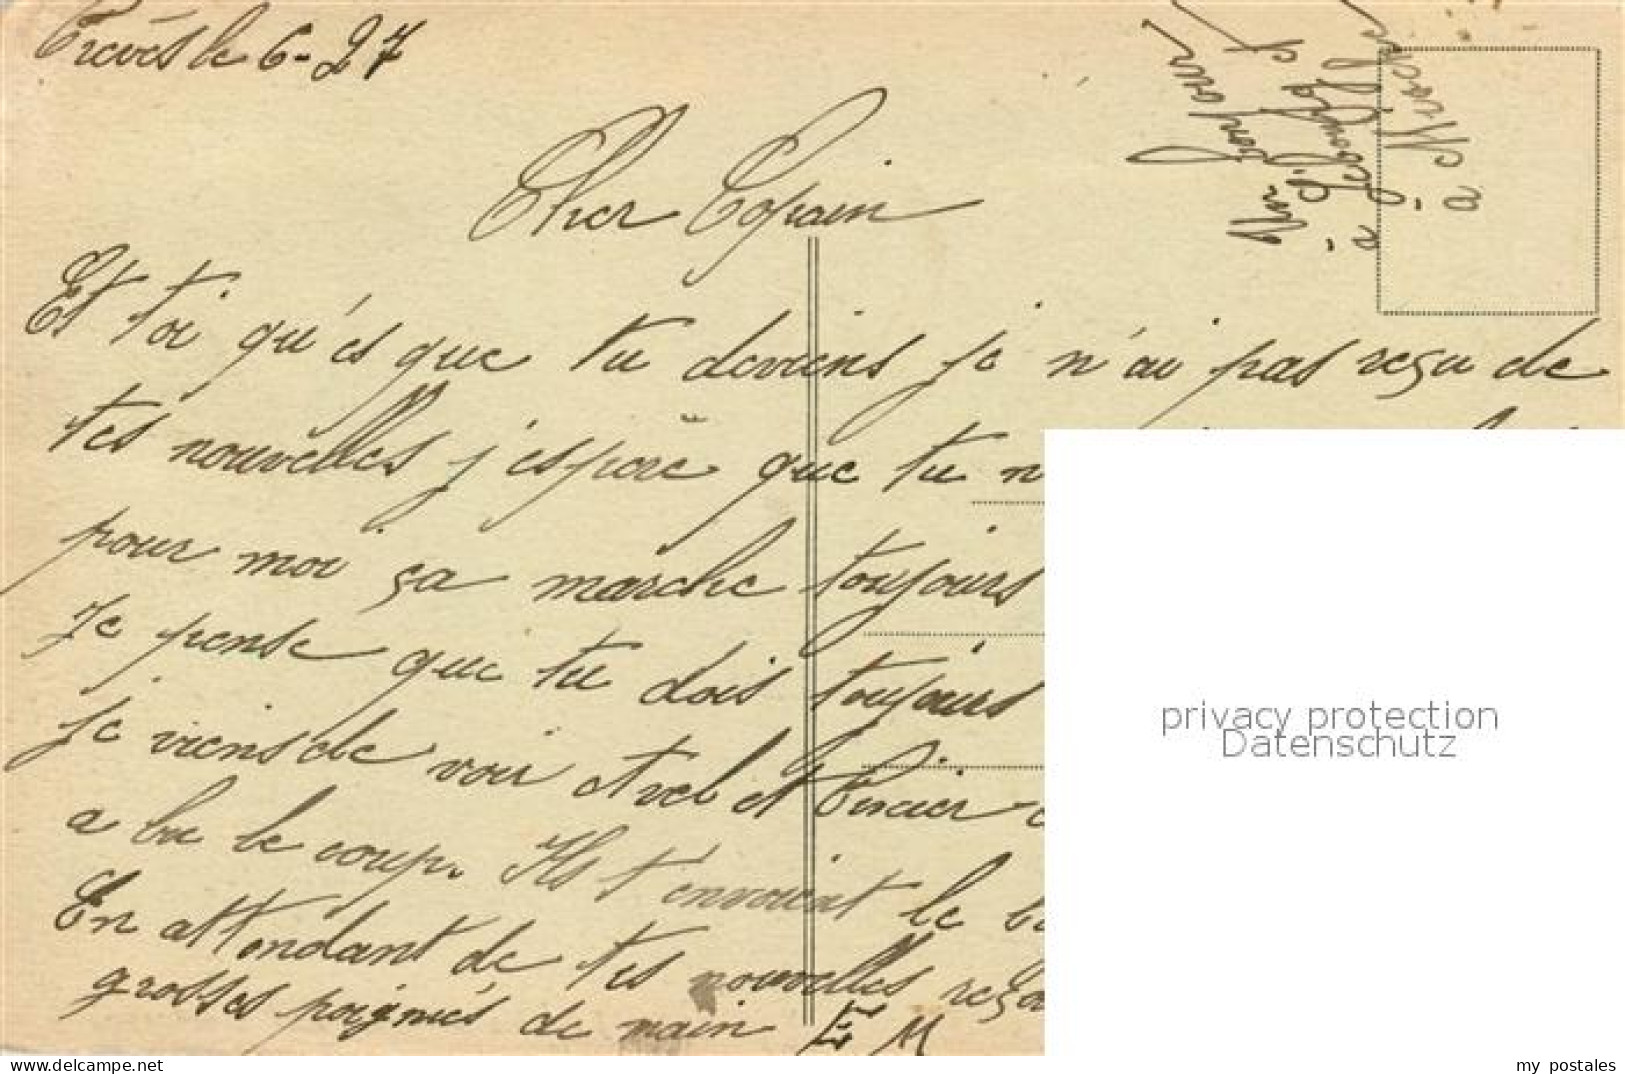 Trèves le 6-27
Mon bonjour
à
à
Cher Copain
Et toi qu'es que tu deviens je n'ai pas reçu de
tes nouvelles j'espère que tu n
pour moi ça marche toujours
Je pense que tu dois toujours
je viens de voir et
a bu le coup. Ils t'envoient le
En attendant de tes nouvelles reçois
grosses poignés de main M
privacy protection
Datenschutz
my postales